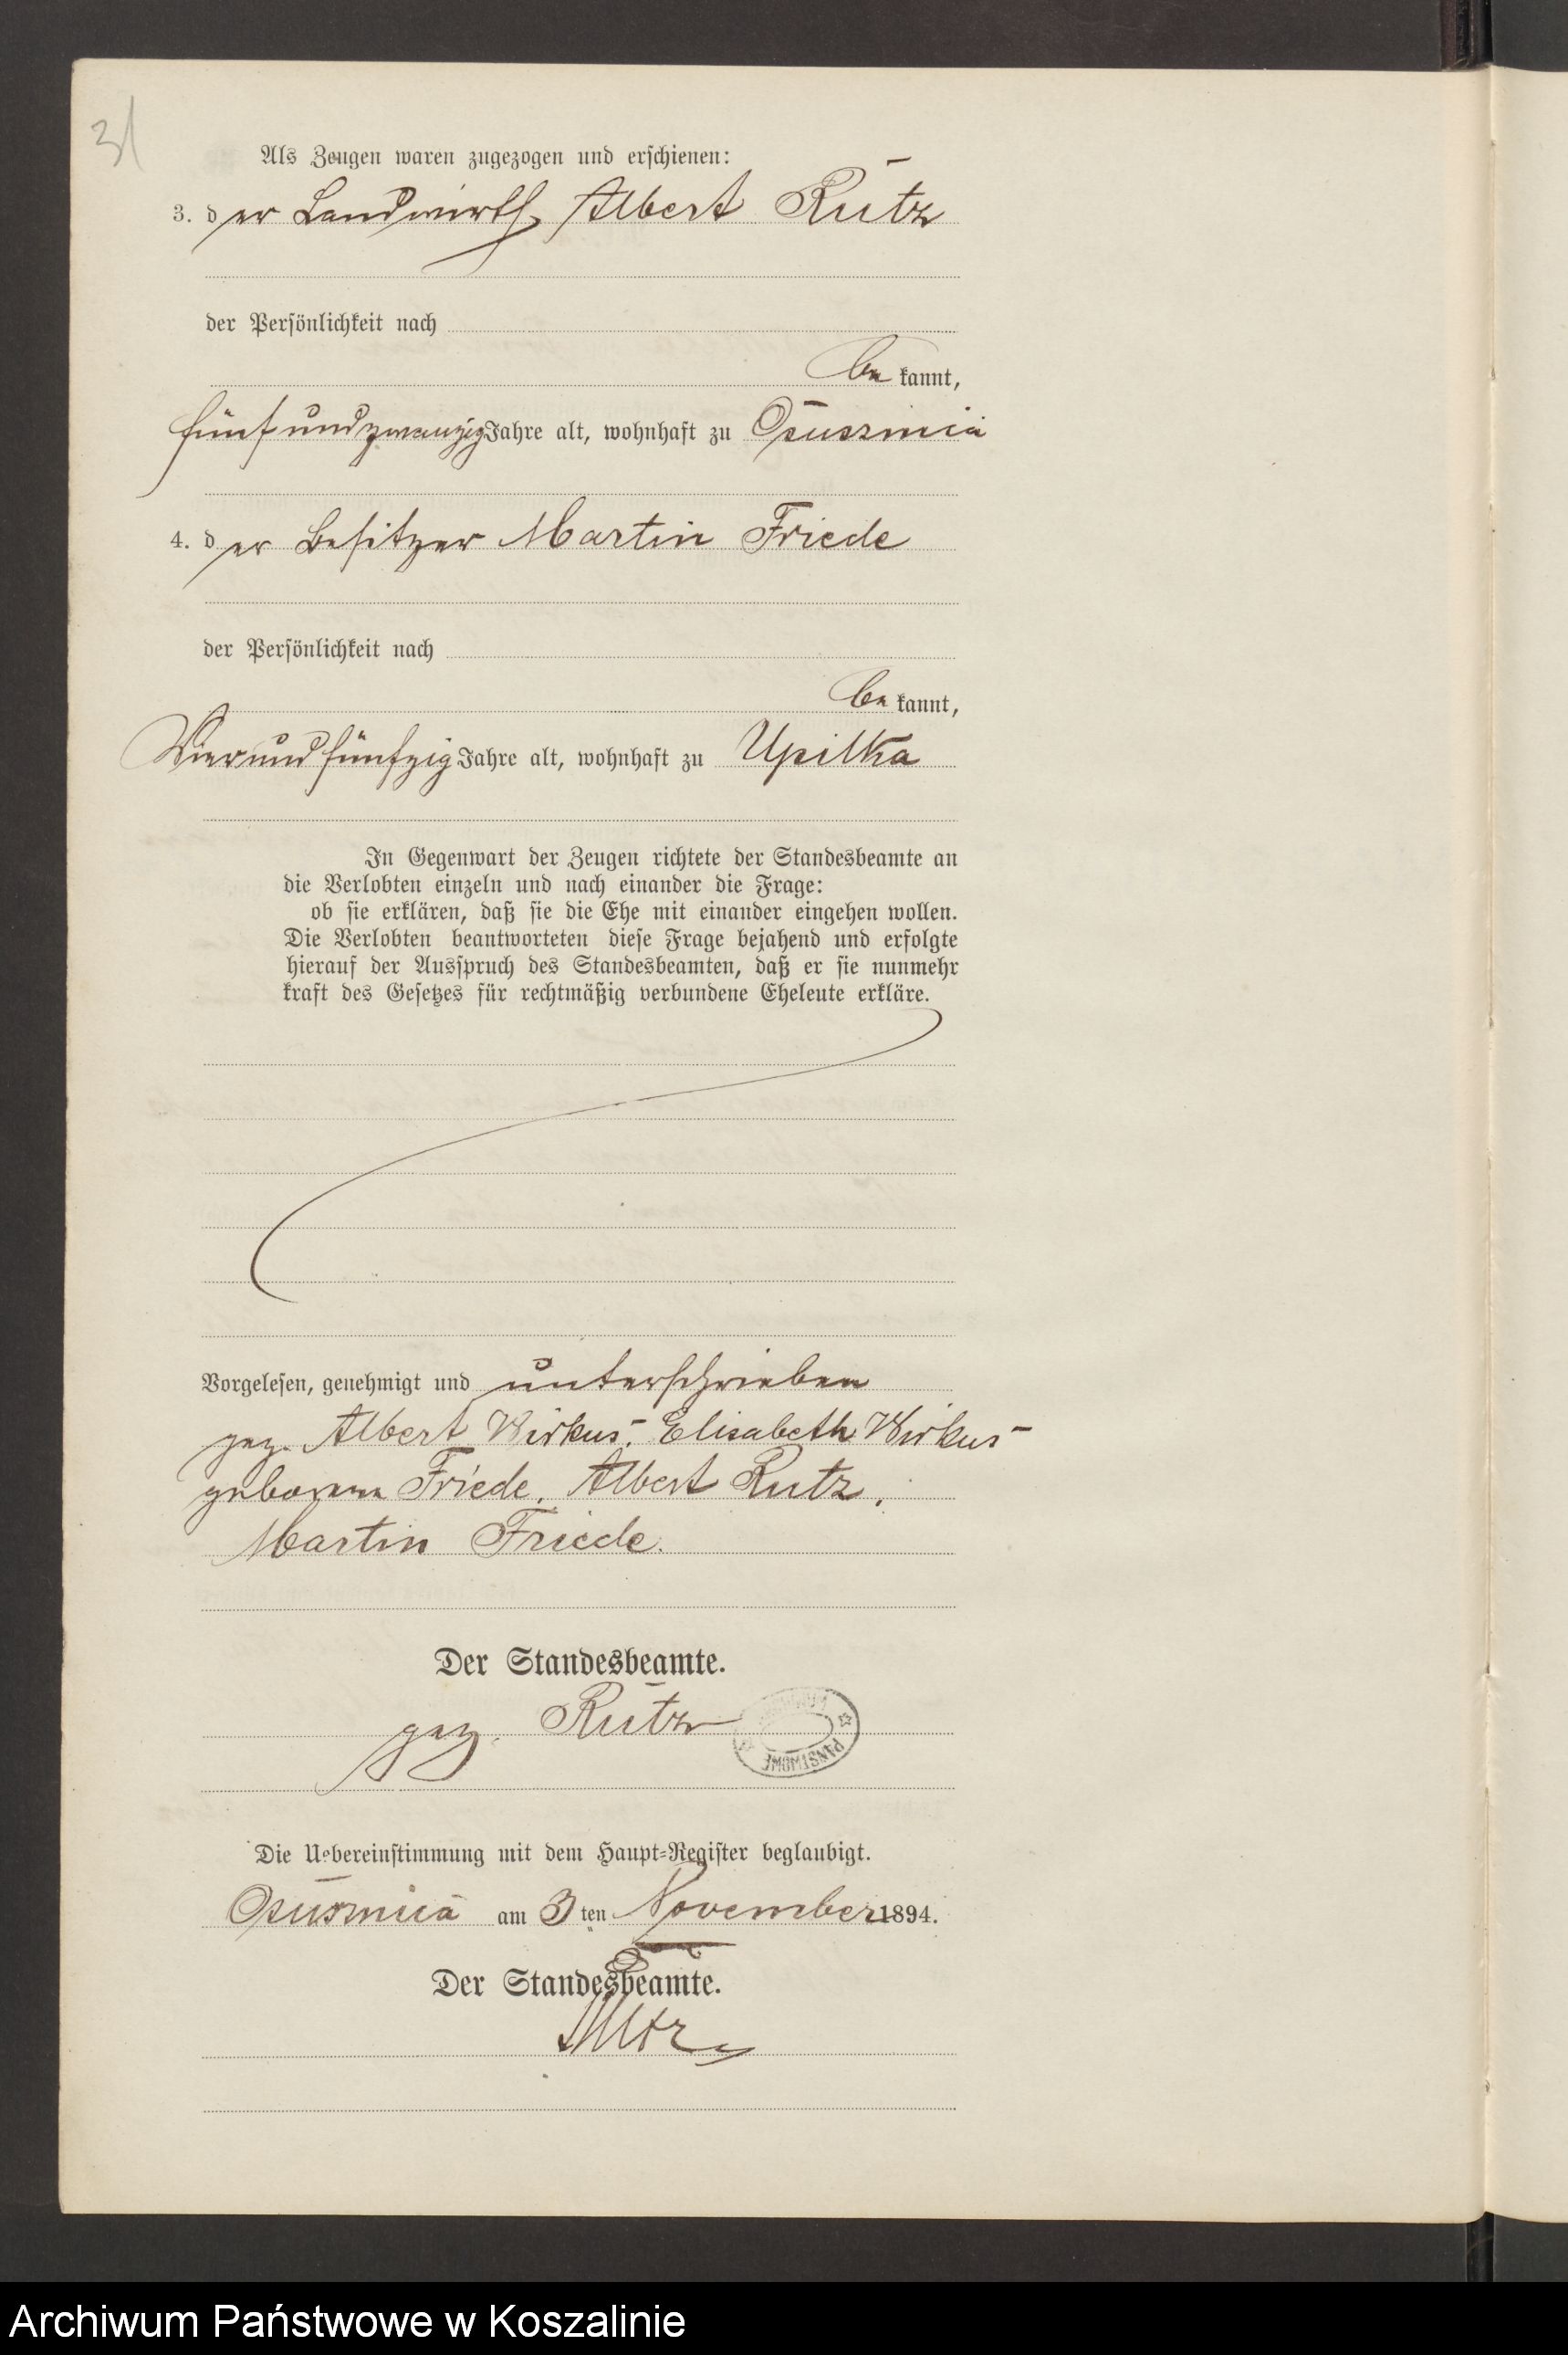 31
Als Zeugen waren zugezogen und erschienen:
3. der Landwirth Albert Rutz
der Persönlichkeit nach
be kannt,
fünfundzwanzig Jahre alt, wohnhaft zu
4. der Besitzer Martin Friede
der Persönlichkeit nach
be kannt,
Vierundfünfzig Jahre alt, wohnhaft zu Upilka
In Gegenwart der Zeugen richtete der Standesbeamte an
die Verlobten einzeln und nach einander die Frage:
ob sie erklären, daß sie die Ehe mit einander eingehen wollen.
Die Verlobten beantworteten diese Frage bejahend und erfolgte
hierauf der Ausspruch des Standesbeamten, daß er sie nunmehr
kraft des Gesetzes für rechtmäßig verbundene Eheleute erkläre.
Vorgelesen, genehmigt und unterschrieben
gez. Albert Wirkus, Elisabeth Wirkus
geborene Friede, Albert Rutz,
Martin Friede.
Der Standesbeamte.
gez. Rutz
PAŃSTWOWE
Die Uebereinstimmung mit dem Haupt-Register beglaubigt.
am 3 ten November 1894.
Der Standesbeamte.
Rutz
Archiwum Państwowe w Koszalinie